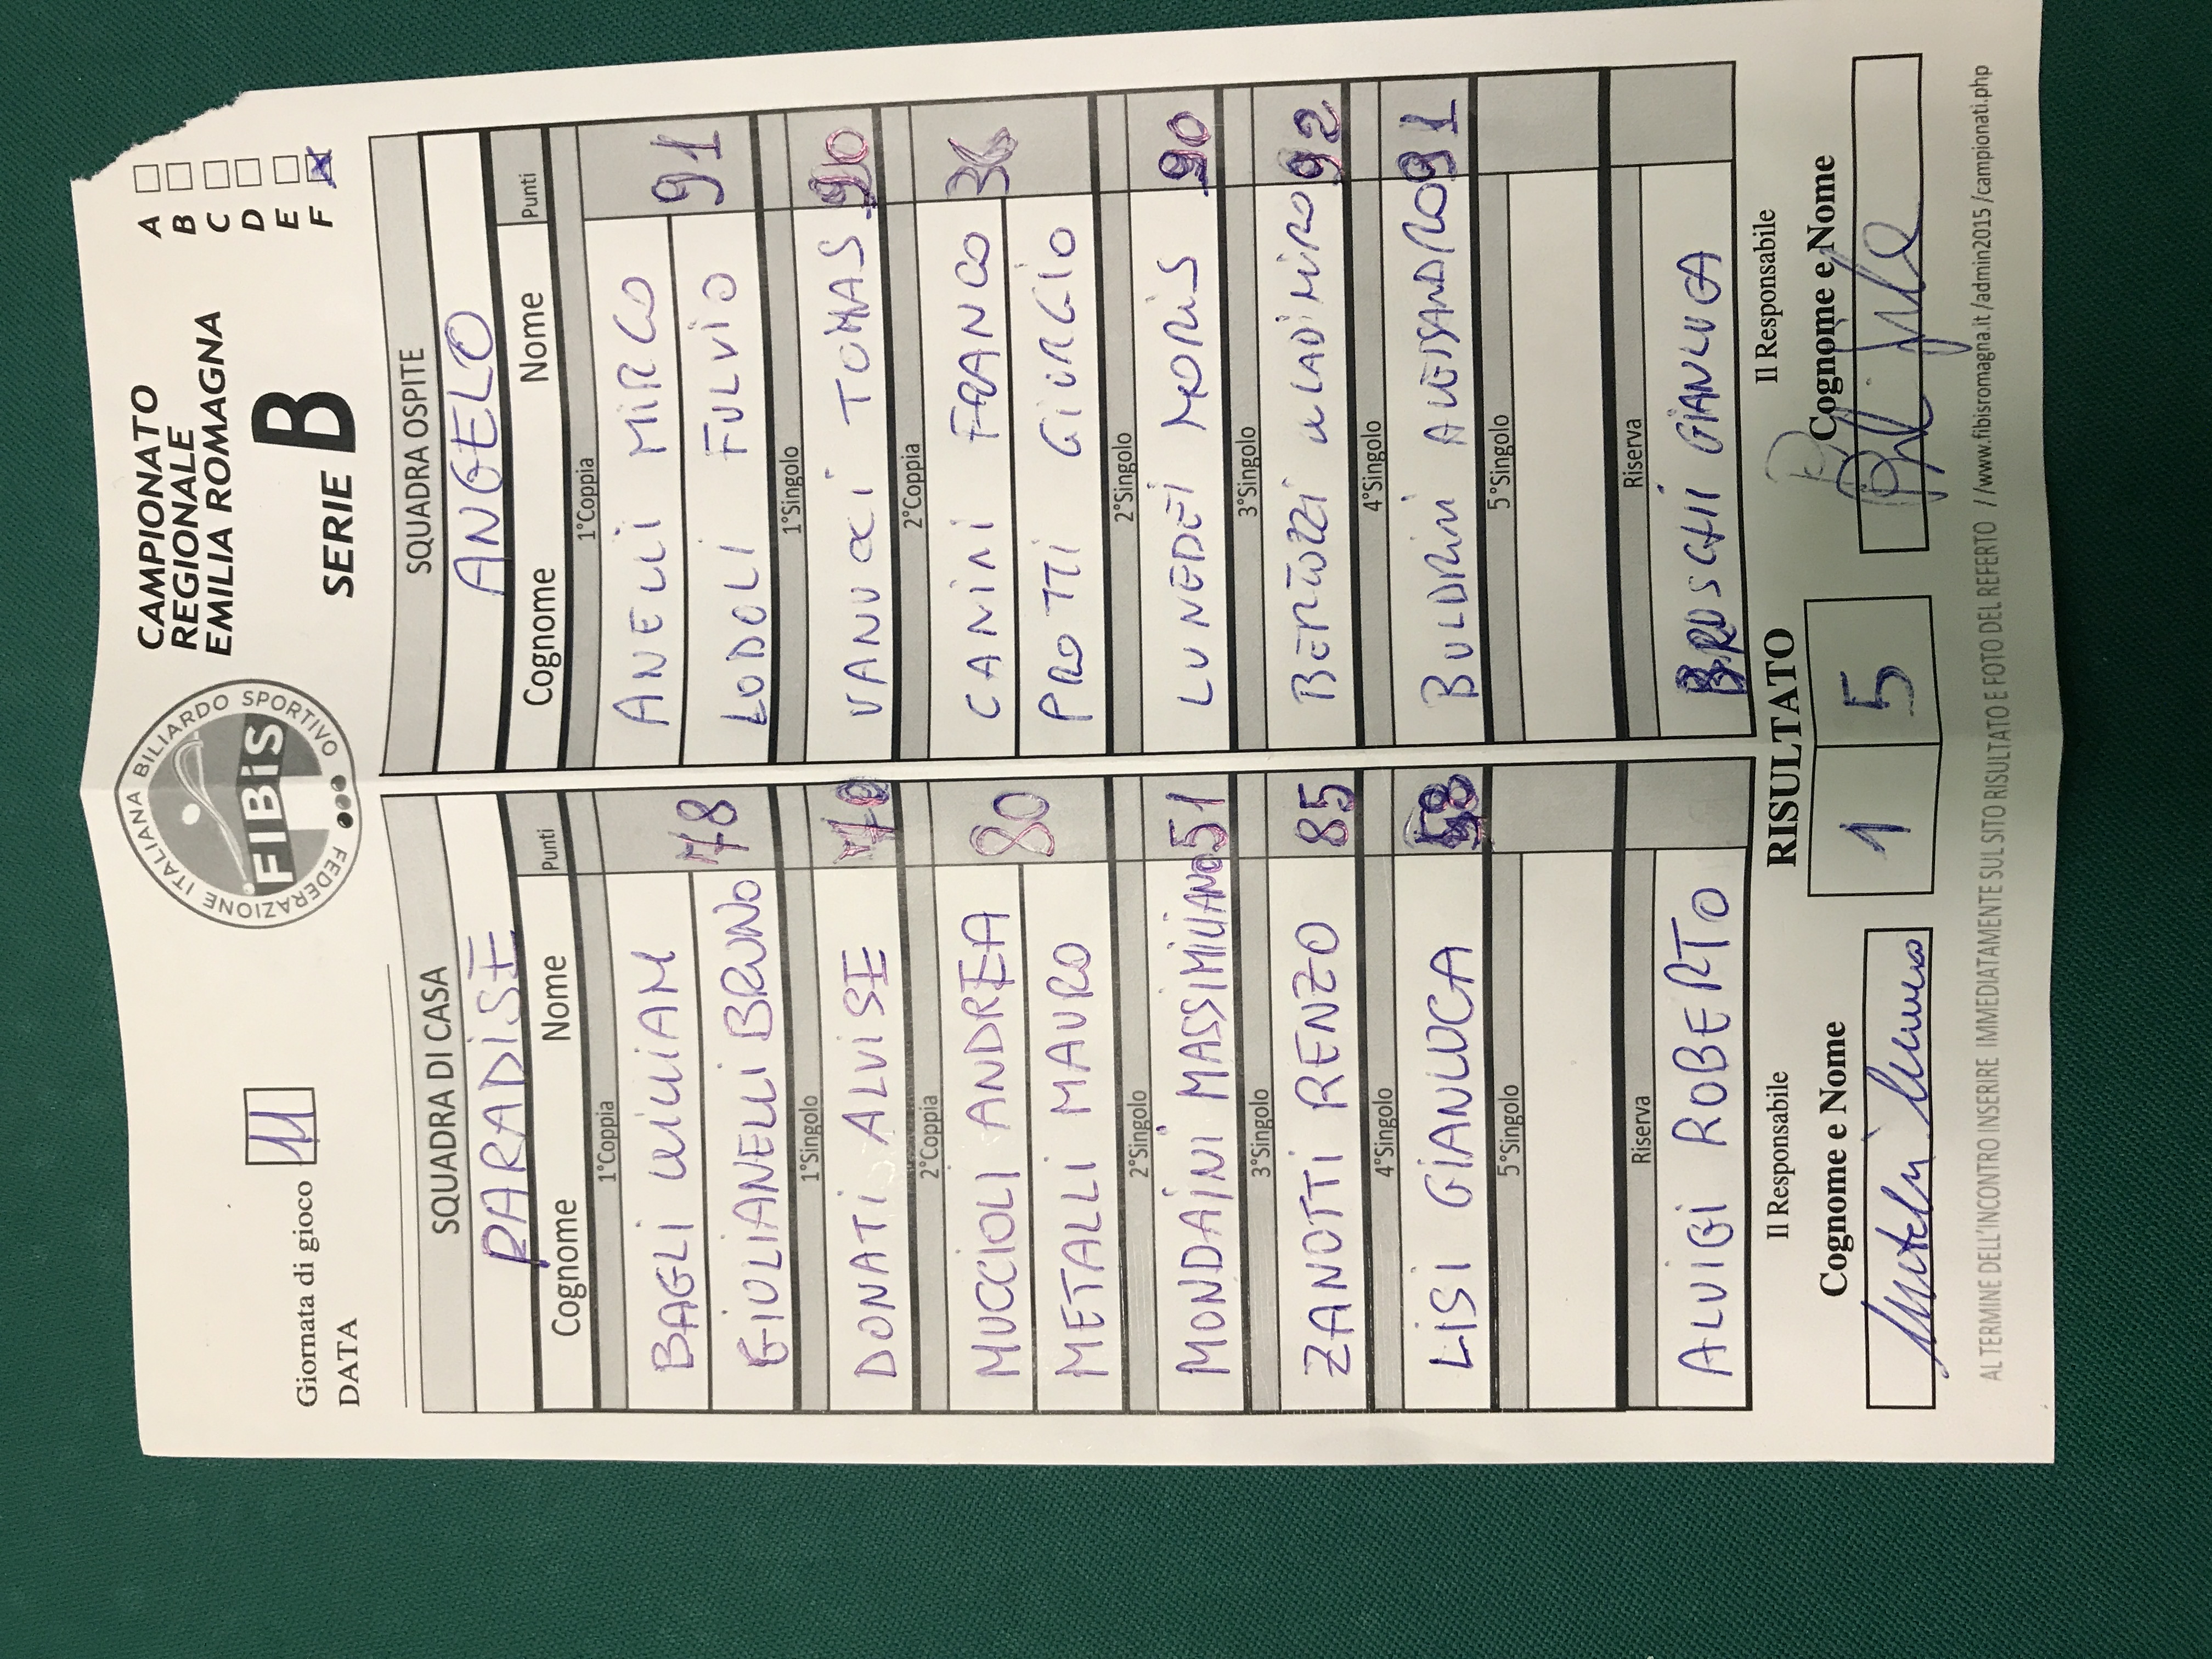 Giornata di gioco 11
DATA
FEDERAZIONE ITALIANA BILIARDO SPORTIVO
FIBiS
CAMPIONATO
REGIONALE
EMILIA ROMAGNA
SERIE B
A
B
C
D
E
F
SQUADRA DI CASA SQUADRA OSPITE
PARADISE ANGELO
Cognome Nome Punti Cognome Nome Punti
1°Coppia 1°Coppia
BAGLI WILLIAM ANELLI MIRCO
78 91
GIULIANELLI BRUNO LODOLI FULVIO
1°Singolo 1°Singolo
DONATI ALVISE VANUCCI TOMAS 90
2°Coppia 2°Coppia
MUCCIOLI ANDREA CANINI FRANCO
80 36
METALLI MAURO PROTTI GIORGIO
2°Singolo 2°Singolo
MONDAINI MASSIMILIANO 51 LUNEDEI MORIS 90
3°Singolo 3°Singolo
ZANOTTI RENZO 85 BERTOZZI WLADIMIRO 92
4°Singolo 4°Singolo
LISI GIANLUCA BULDRINI ALESSANDRO 91
5°Singolo 5°Singolo
Riserva Riserva
ALUIGI ROBERTO BRUSCHI GIANLUCA
Il Responsabile RISULTATO Il Responsabile
Cognome e Nome 1 5 Cognome e Nome
AL TERMINE DELL'INCONTRO INSERIRE IMMEDIATAMENTE SUL SITO RISULTATO E FOTO DEL REFERTO //www.fibisromagna.it/admin2015/campionati.php